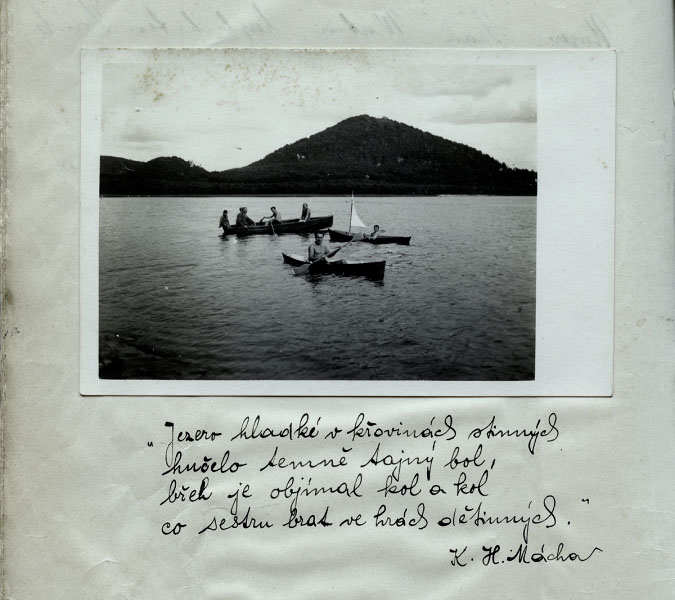 "Jezero hladké v křovinách stinných
hučelo temně tajný bol,
břeh je objímal kol a kol
co sestru brat ve hrách dětinných."
K. H. Mácha